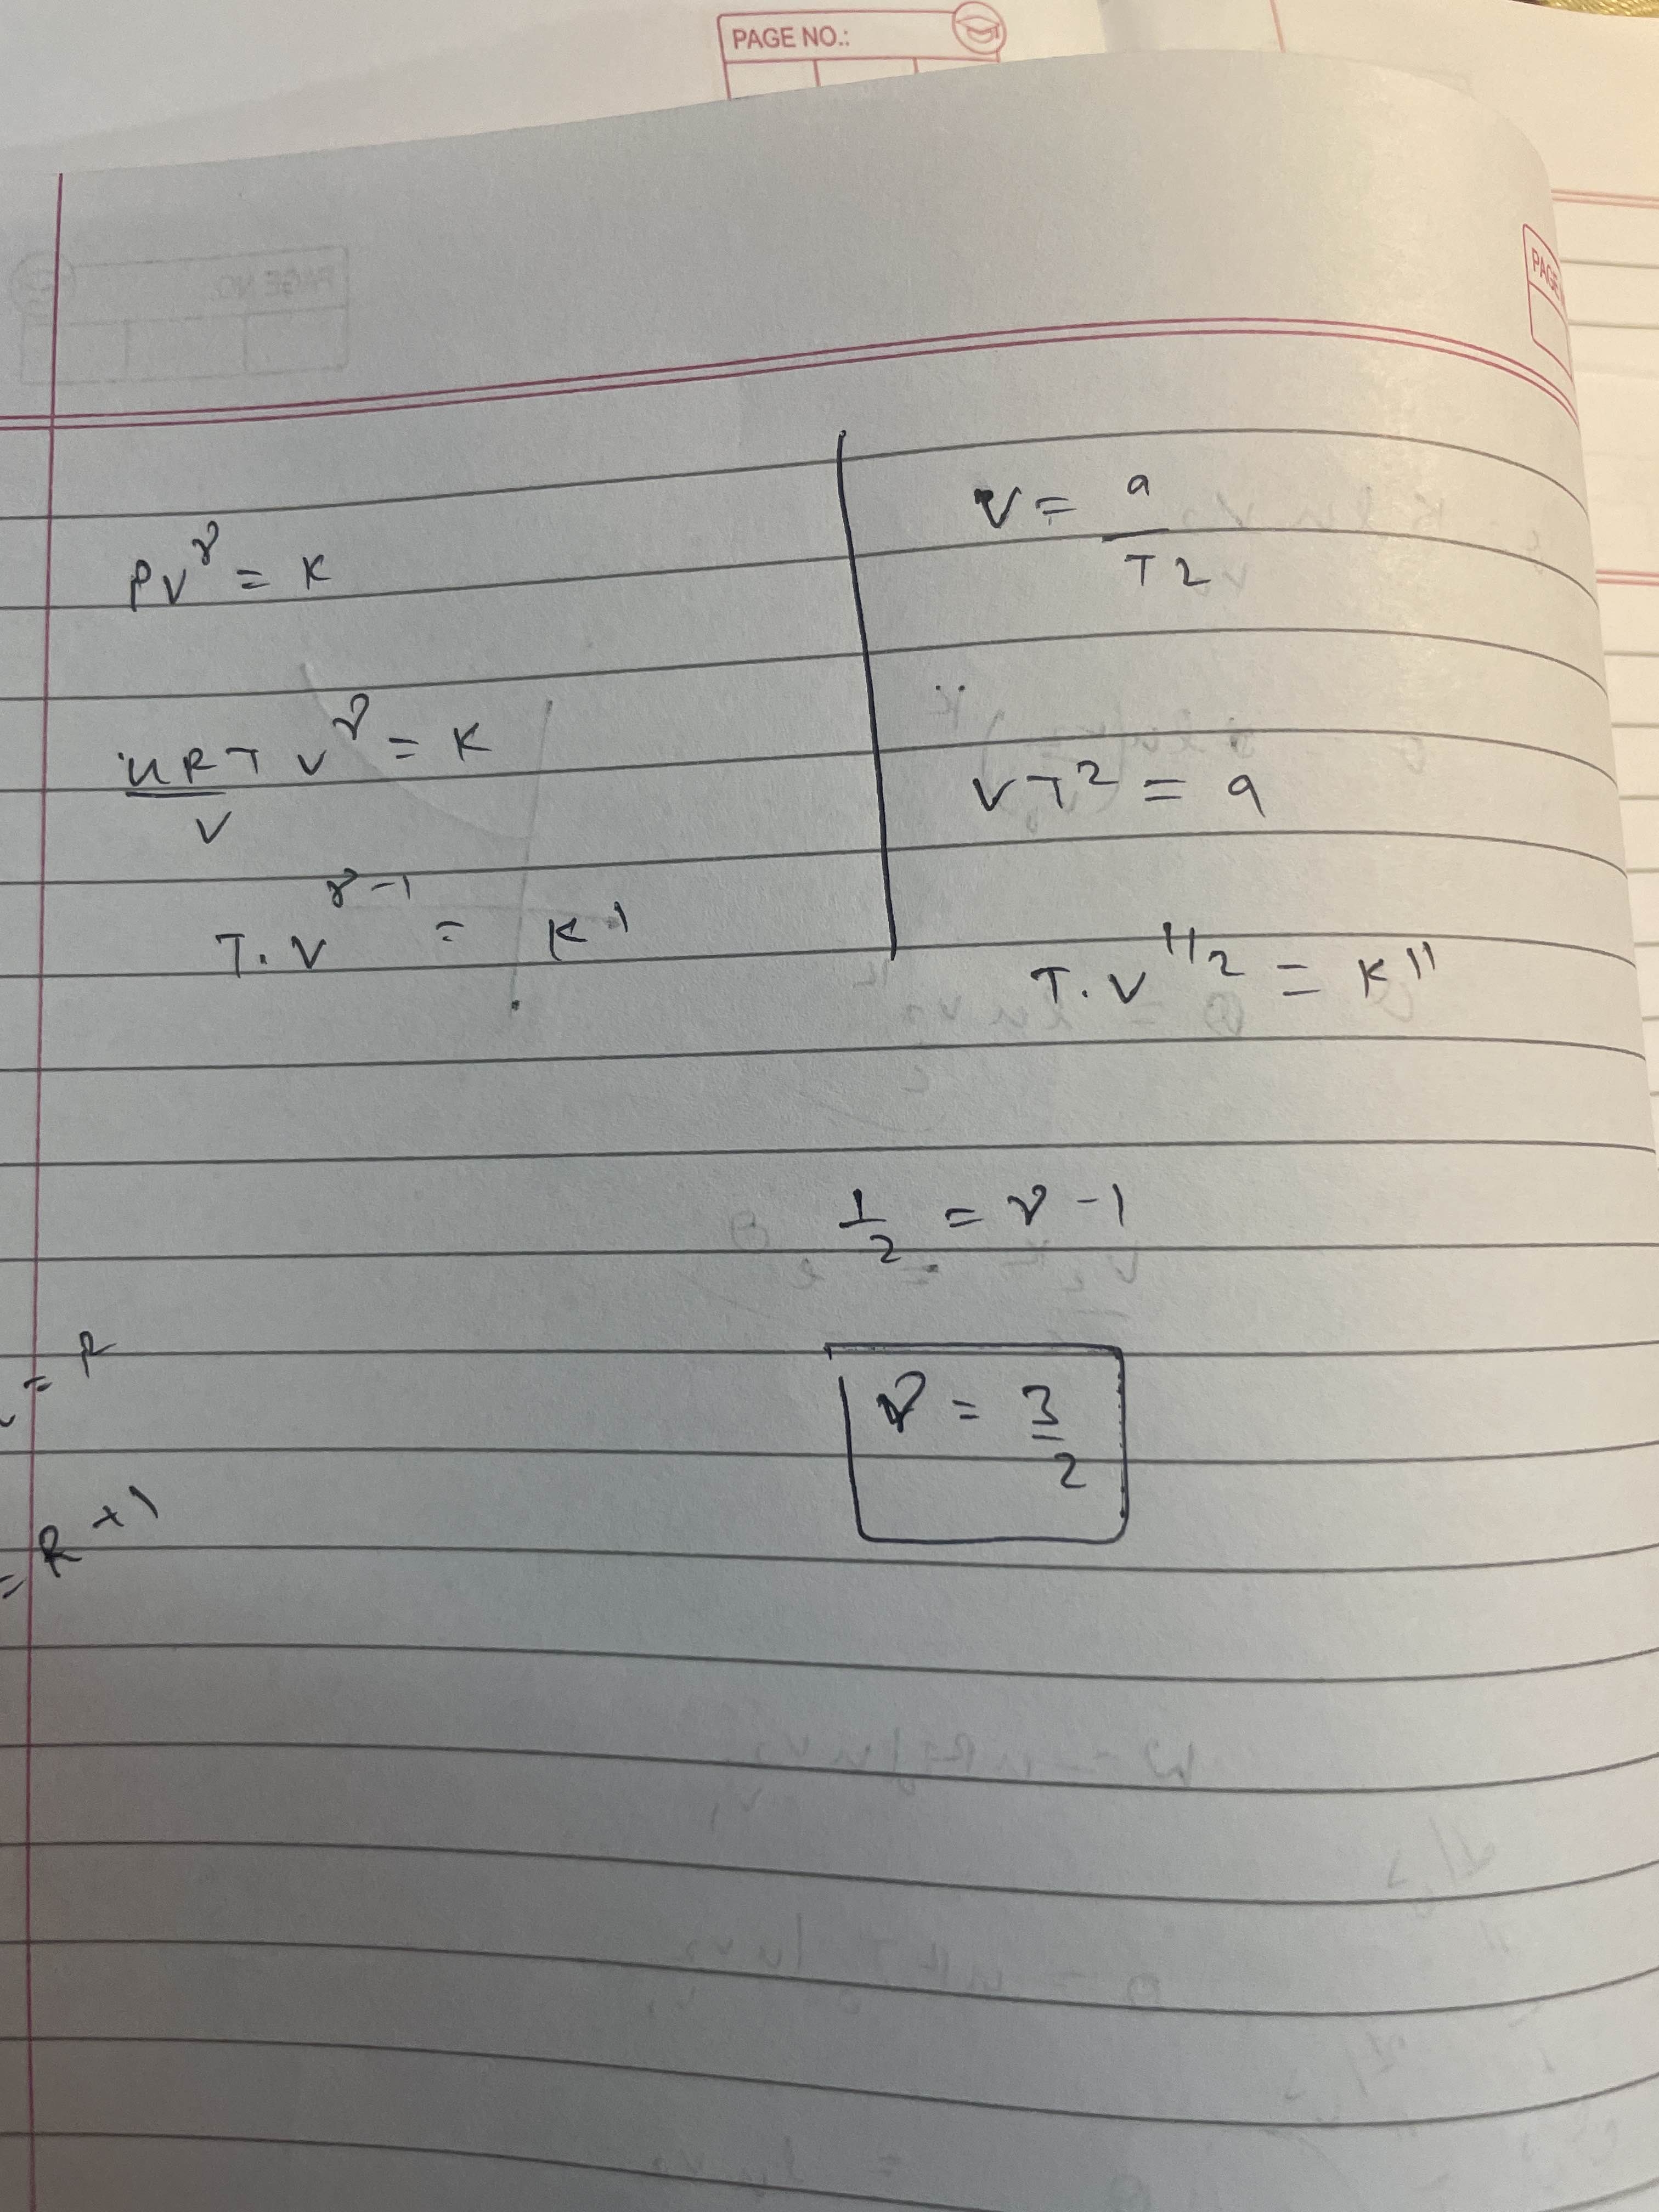 PAGE NO.:
PAGE
PVᵞ = K
nRT/V Vᵞ = K
T.Vᵞ⁻¹ = K'
V = a/T2
VT² = a
T.V^1/2 = K''
1/2 = γ - 1
γ = 3/2
= R
= R +1